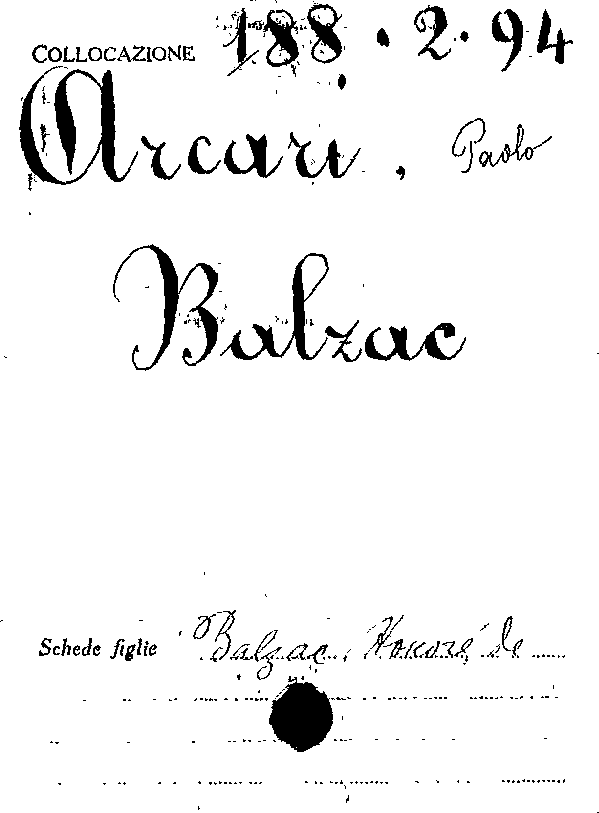 COLLOCAZIONE 188.2.94
Arcari, Paolo
Balzac
Schede figlie Balzac, Honoré de